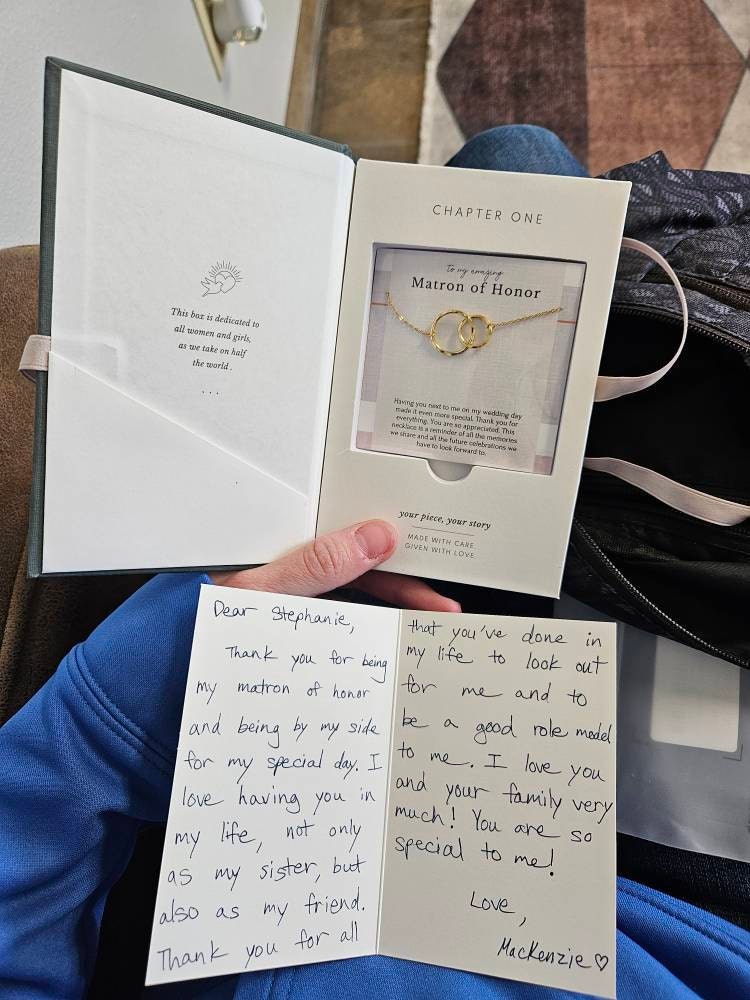 This box is dedicated to
all women and girls,
as we take on half
the world .
. . .
CHAPTER ONE
to my amazing
Matron of Honor
Having you next to me on my wedding day
made it even more special. Thank you for
everything. You are so appreciated. This
necklace is a reminder of all the memories
we share and all the future celebrations we
have to look forward to.
your piece, your story
MADE WITH CARE
GIVEN WITH LOVE
Dear Stephanie,
Thank you for being
my matron of honor
and being by my side
for my special day. I
love having you in
my life, not only
as my sister, but
also as my friend.
Thank you for all
that you've done in
my life to look out
for me and to
be a good role model
to me. I love you
and your family very
much! You are so
special to me!
Love,
MacKenzie ♡